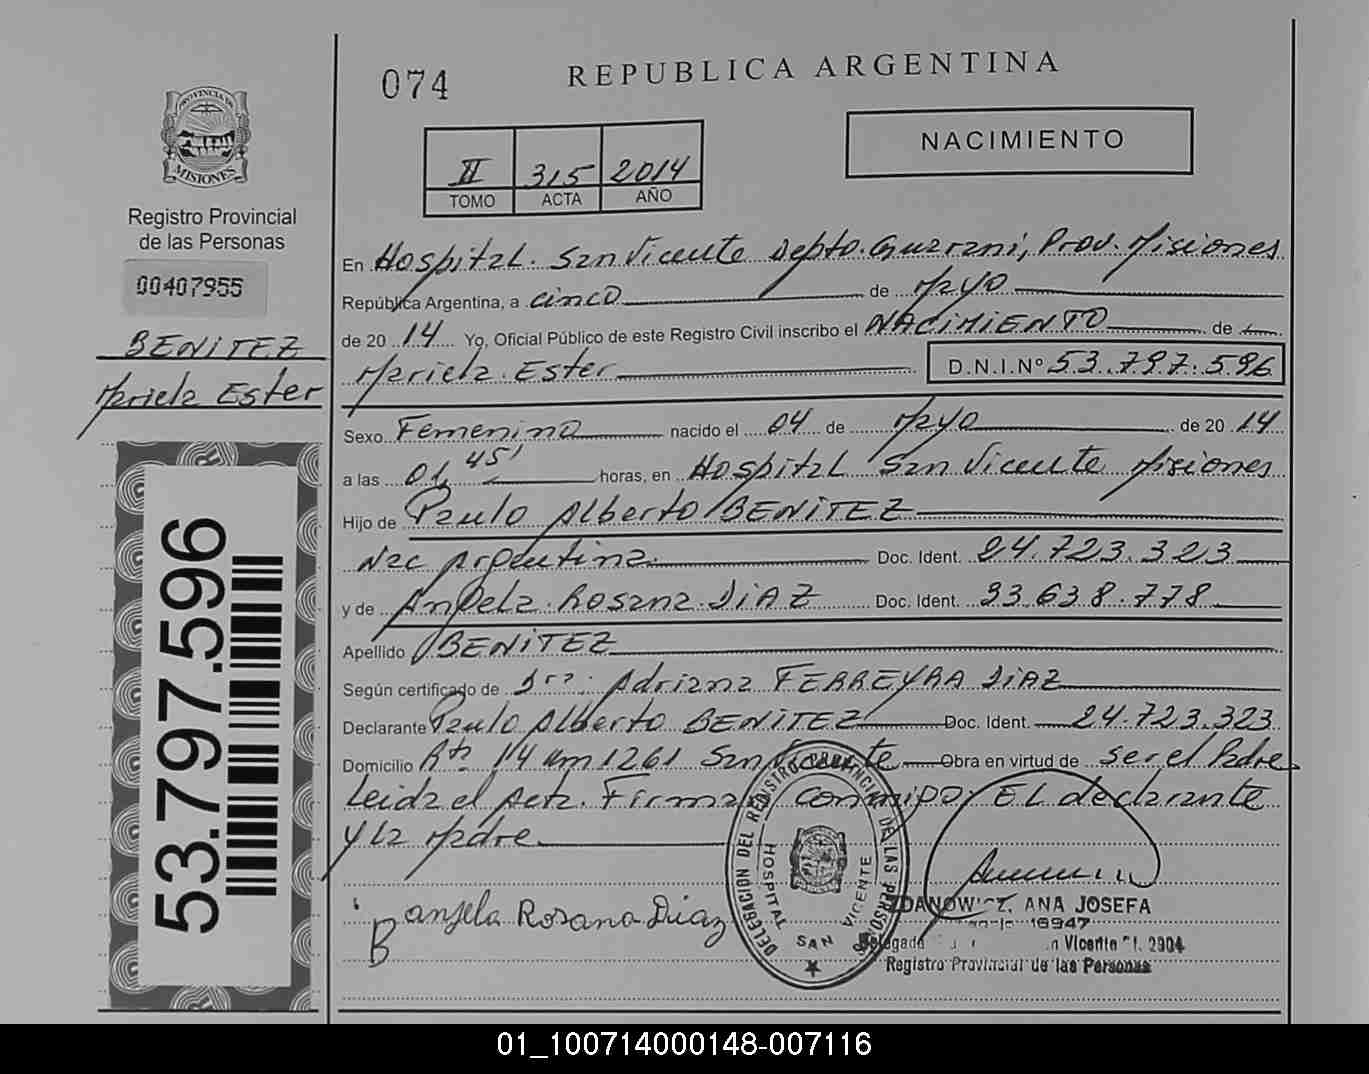 074
REPUBLICA ARGENTINA
PROVINCIA DE
MISIONES
Registro Provincial
de las Personas
00407955
BENITEZ
Mariela Ester
53.797.596
II 315 2014
TOMO ACTA AÑO
NACIMIENTO
En Hospital San Vicente Depto. Guarani, Prov. Misiones
República Argentina, a cinco de Mayo
de 20 14 Yo, Oficial Público de este Registro Civil inscribo el NACIMIENTO de
Mariela Ester D.N.I.Nº 53.797.596
Sexo Femenino nacido el 04 de Mayo de 20 14
a las 01,45' horas, en Hospital San Vicente Misiones
Hijo de Paulo Alberto BENITEZ
Nac Argentina. Doc. Ident. 24.723.323
y de Angela Rosana DIAZ Doc. Ident. 33.638.778
Apellido BENITEZ
Según certificado de Dra. Adriana FERREYRA DIAZ
Declarante Paulo Alberto BENITEZ Doc. Ident. 24.723.323
Domicilio Rta 14 Km 1261 San Vicente Obra en virtud de ser el Padre
Leida el Acta. Firman conmigo: EL declarante
y la Madre
Angela Rosana Diaz
DELEGACION DEL REGISTRO PROVINCIAL DE LAS PERSONAS
HOSPITAL SAN VICENTE
ANA JOSEFA
16947
Delegada Vicente 2904
Registro Provincial de las Personas
01_100714000148-007116